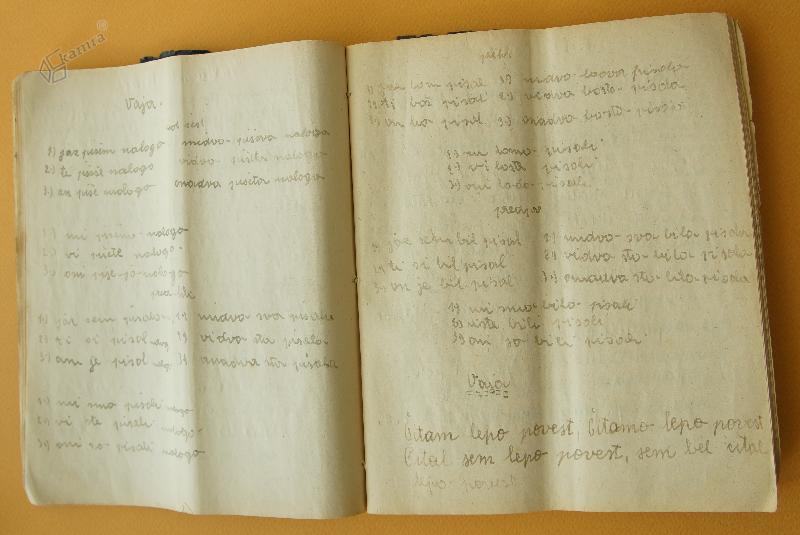 kamra
Vaja.
sed. čas
1) jaz pišem nalogo midva piševa nalogo
2) ti pišeš nalogo vidva pišeta nalogo
3) on piše nalogo onadva pišeta nalogo
1) mi pišemo nalogo
2) vi pišete nalogo
3) oni pišejo nalogo
1) jaz sem pisal 1) midva sva pisala
2) ti si pisal 2) vidva sta pisala
3) on je pisal nalogo 3) onadva sta pisala
1) mi smo pisali nalogo
2) vi ste pisali nalogo
3) oni so pisali nalogo
1) jaz bom pisal 1) midva bova pisala
2) ti boš pisal 2) vidva bosta pisala
3) on bo pisal 3) onadva bosta pisala
1) mi bomo pisali
2) vi boste pisali
3) oni bodo pisali
1) jaz sem bil pisal 1) midva sva bila pisala
2) ti si bil pisal 2) vidva sta bila pisala
3) on je bil pisal 3) onadva sta bila pisala
1) mi smo bili pisali
2) viste bili pisali
3) oni so bili pisali
Vaja
Čitam lepo povest, Čitamo lepo povest
Čital sem lepo povest, sem bel čital
lepo povest